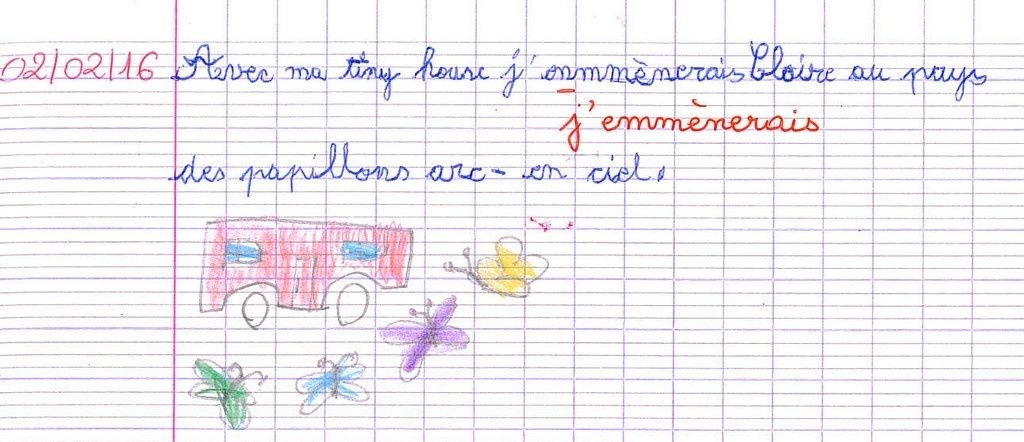 02/02/16 Avec ma tiny house j'onmmènerais Cloire au pays
j'emmènerais
des papillons arc-en ciel.